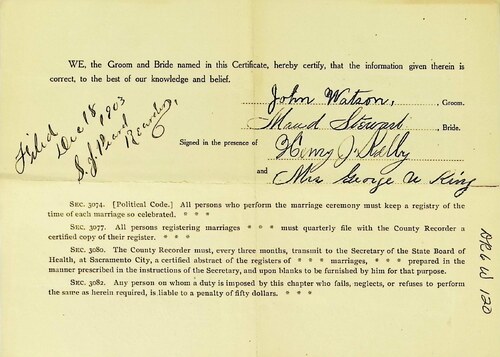 WE, the Groom and Bride named in this Certificate, hereby certify, that the information given therein is
correct, to the best of our knowledge and belief.
John Watson, , Groom.
Maud Stewart , Bride.
Signed in the presence of Henry J. Kelly
and Mrs George W King
Filed
Dec 18, 1903
Recorder,
SEC. 3074. [Political Code.] All persons who perform the marriage ceremony must keep a registry of the
time of each marriage so celebrated. * * *
SEC. 3077. All persons registering marriages * * * must quarterly file with the County Recorder a
certified copy of their register. * * *
SEC. 3080. The County Recorder must, every three months, transmit to the Secretary of the State Board of
Health, at Sacramento City, a certified abstract of the registers of * * * marriages, * * * prepared in the
manner prescribed in the instructions of the Secretary, and upon blanks to be furnished by him for that purpose.
SEC. 3082. Any person on whom a duty is imposed by this chapter who fails, neglects, or refuses to perform
the same as herein required, is liable to a penalty of fifty dollars. * * *